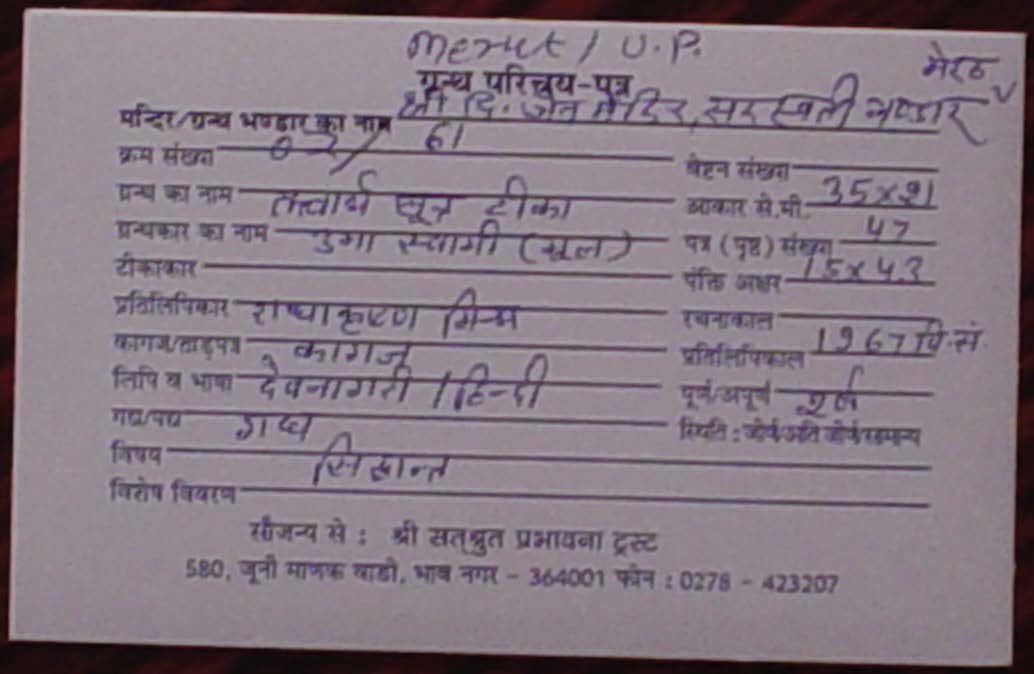 Merut / U.P.
ग्रन्थ परिचय-पत्र मेरठ
मन्दिर/ग्रन्थ भण्डार का नाम श्री दि. जैन मंदिर, सरस्वती भण्डार
क्रम संख्या 61 वेष्टन संख्या
ग्रन्थ का नाम तत्त्वार्थ सूत्र टीका आकार से.मी. 35x21
ग्रन्थकार का नाम उमा स्वामी (मूल) पत्र (पृष्ठ) संख्या 47
टीकाकार पंक्ति अक्षर 15x43
प्रतिलिपिकार राधाकृष्ण मिश्र रचनाकाल
कागज/ताड़पत्र कागज प्रतिलिपिकाल 1967 वि.सं.
लिपि व भाषा देवनागरी / हिन्दी पूर्ण/अपूर्ण पूर्ण
गद्य/पद्य गद्य स्थिति : जीर्ण/अति जीर्ण/सामान्य
विषय सिद्धान्त
विशेष विवरण
सौजन्य से : श्री सत्श्रुत प्रभावना ट्रस्ट
580, जूनी माणक वाडी, भाव नगर - 364001 फोन : 0278 - 423207